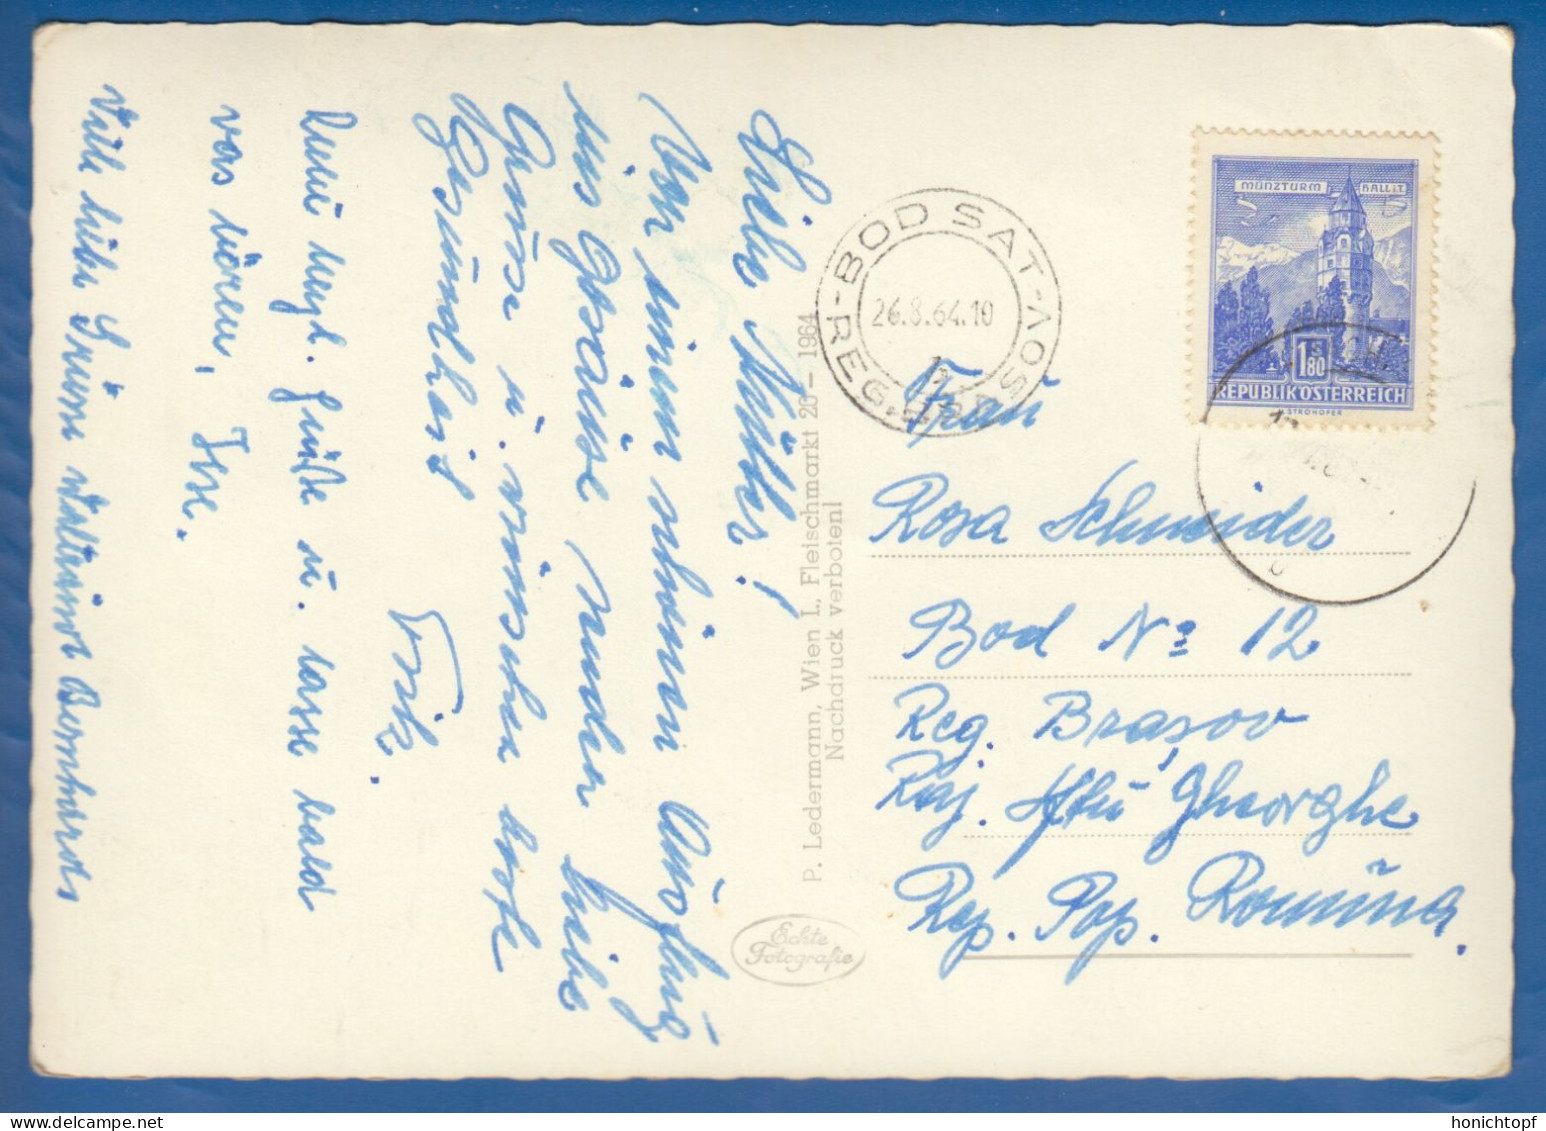 Liebe Mutter!
Von einem schönen Ausflug
aus Gosau senden liebe
Grüsse u. wünschen beste
Gesundheit
Fritz.
herzl. Grüße u. lasse bald
was hören, Ilse.
Viele liebe Grüsse Waltraud Bernhards
P. Ledermann, Wien I., Fleischmarkt 20 - 1964
Nachdruck verboten!
Echte
Fotografie
BOD SAT-
REG. BRASOV
26.8.64.10
MÜNZTURM HALL i.T.
S
1.80
REPUBLIK ÖSTERREICH
STROHOFER
Frau
Rosa Schneider
Bod No 12
Reg. Brașov
Raj. Sftu Gheorghe
Rep. Pop. Romînă.
honichtopf